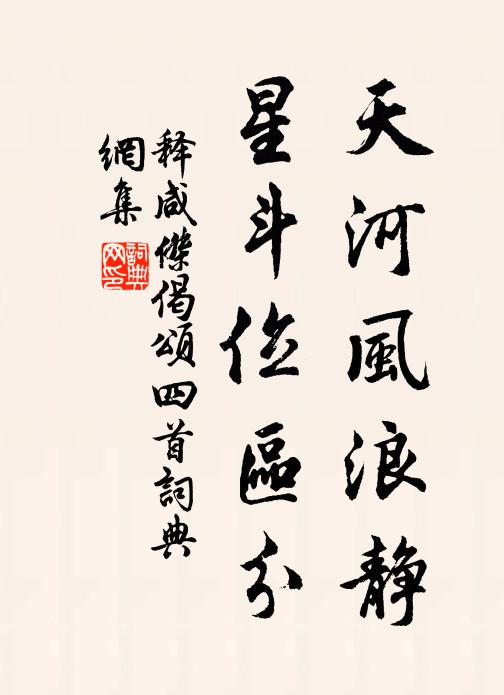 天河風浪静
星斗位區分
释咸傑偈頌四首詞典
網集
詞典网印